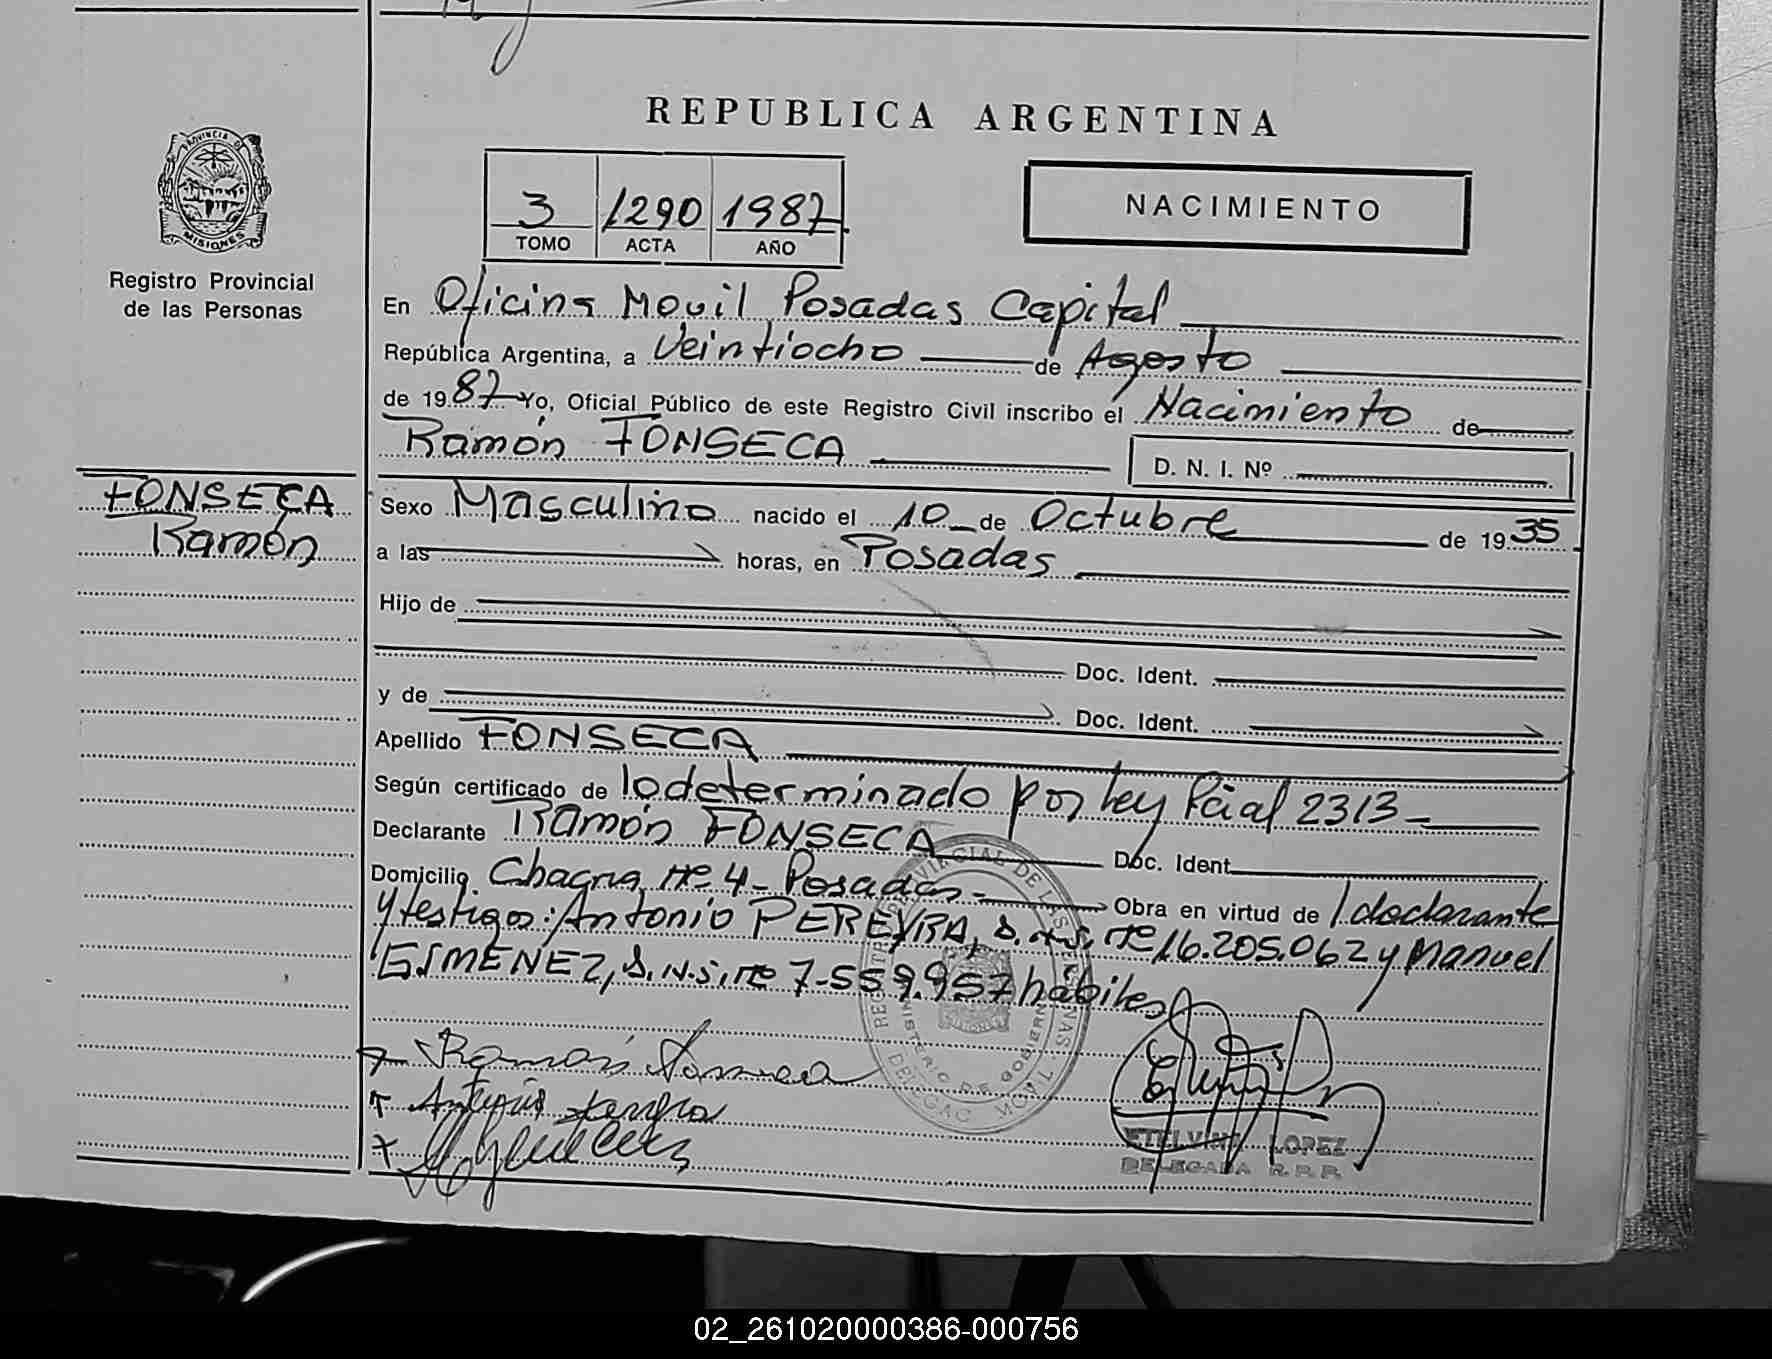 REPUBLICA ARGENTINA
PROVINCIA DE
MISIONES
Registro Provincial
de las Personas
3 1290 1987
TOMO ACTA AÑO
NACIMIENTO
En Oficina Movil Posadas Capital
República Argentina, a Veintiocho de Agosto
de 1987 Yo, Oficial Público de este Registro Civil inscribo el Nacimiento de
Ramón FONSECA
D. N. I. Nº
FONSECA
Ramón
Sexo Masculino nacido el 10 de Octubre de 1935
a las horas, en Posadas
Hijo de
Doc. Ident.
y de Doc. Ident.
Apellido FONSECA
Según certificado de lo determinado por Ley Pcial 2313
Declarante Ramón FONSECA Doc. Ident.
Domicilio Chacra Nº 4 - Posadas - Obra en virtud de l.declarante
y testigos: Antonio PEREYRA, D.N.I. Nº 16.205.062 y Manuel
GIMENEZ, D.N.I. Nº 7-559.957 hábiles
Ramón Fonseca
ETELVINA LOPEZ
DELEGADA R.P.P.
02_261020000386-000756